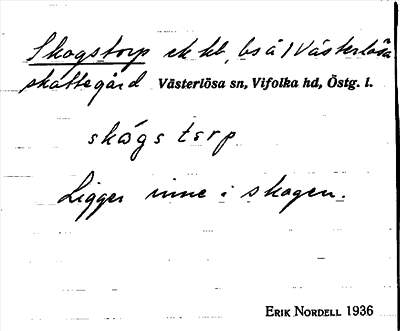 Skogstorp ck hb, bs å 1 Västerlösa
skattegård Västerlösa sn, Vifolka hd, Östg. l.
skógs torp
Ligger inne i skogen.
ERIK NORDELL 1936